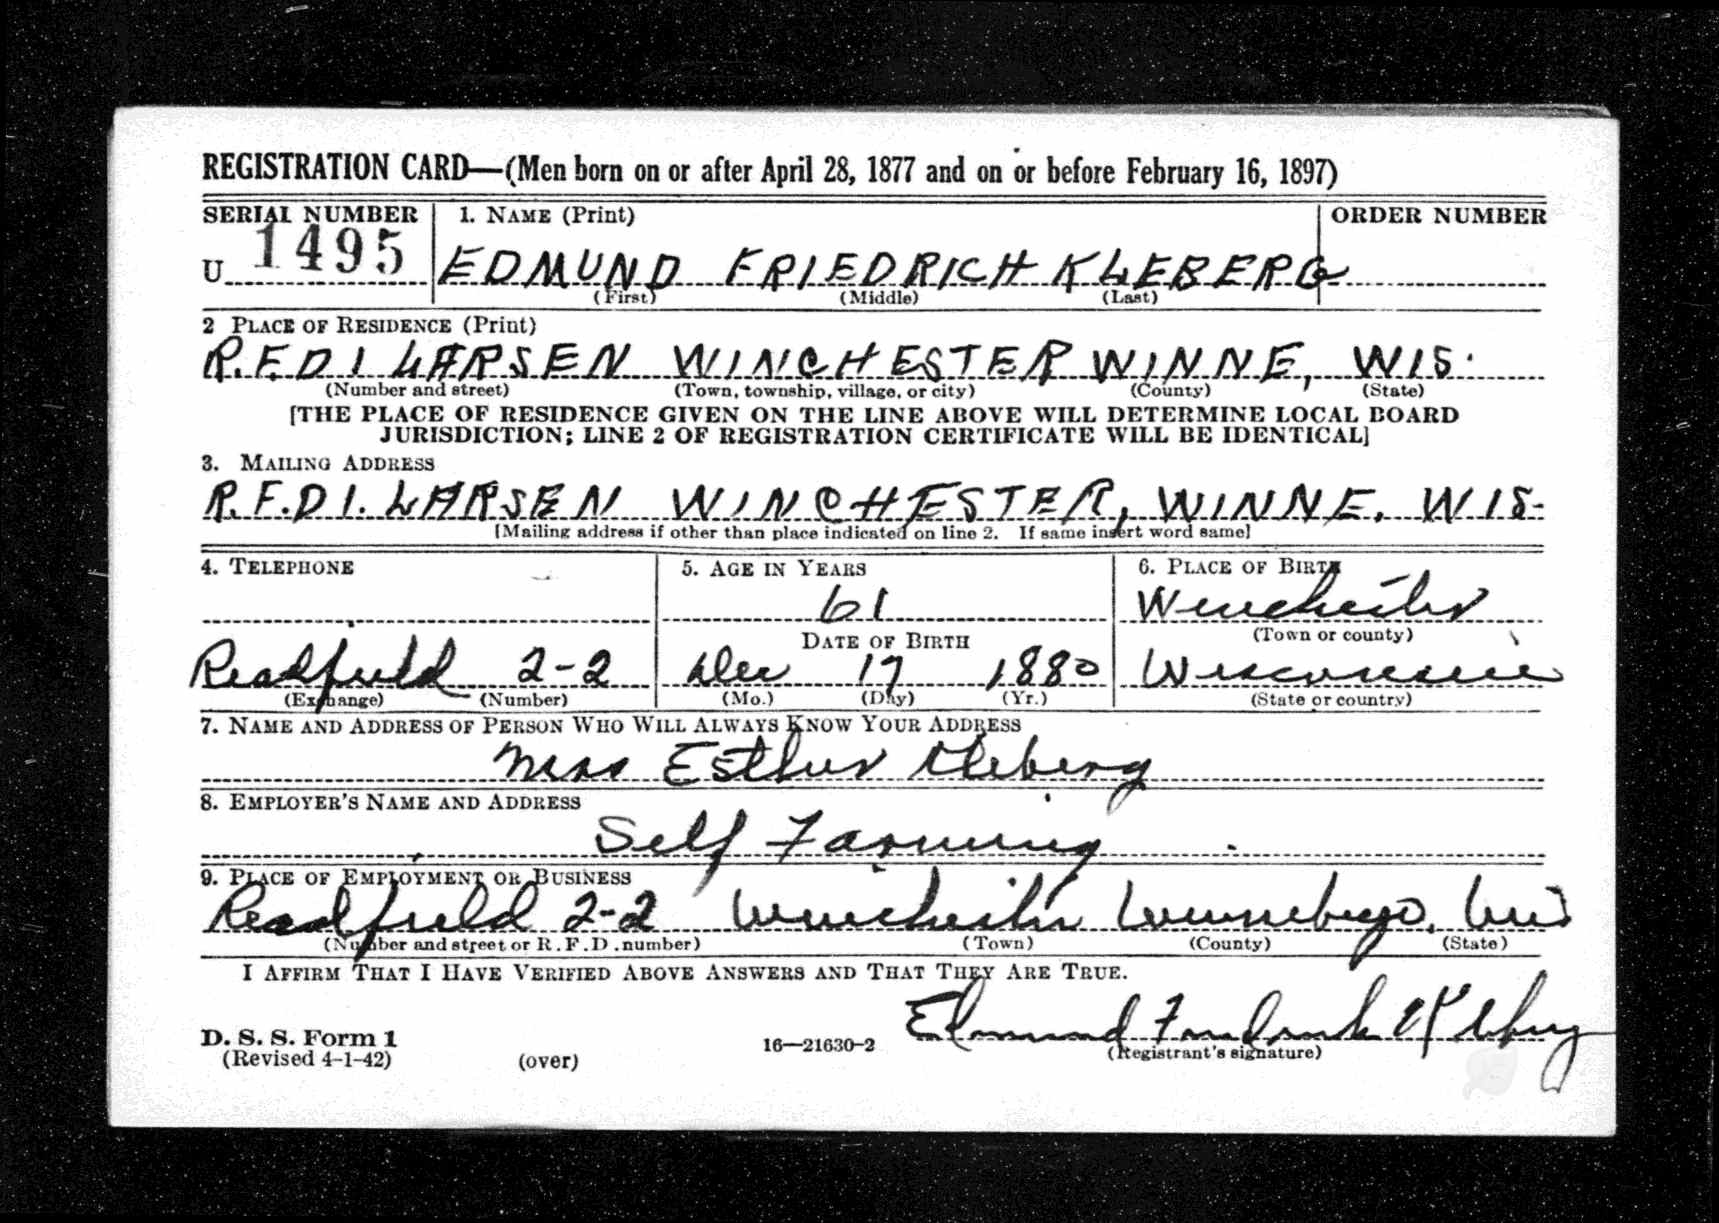 REGISTRATION CARD—(Men born on or after April 28, 1877 and on or before February 16, 1897)
SERIAL NUMBER 1. NAME (Print) ORDER NUMBER
U 1495 EDMUND FRIEDRICH KLEBERG
(First) (Middle) (Last)
2 PLACE OF RESIDENCE (Print)
R.F.D 1 LARSEN WINCHESTER WINNE, WIS.
(Number and street) (Town, township, village, or city) (County) (State)
[THE PLACE OF RESIDENCE GIVEN ON THE LINE ABOVE WILL DETERMINE LOCAL BOARD
JURISDICTION; LINE 2 OF REGISTRATION CERTIFICATE WILL BE IDENTICAL]
3. MAILING ADDRESS
R.F.D 1. LARSEN WINCHESTER, WINNE. WIS.
[Mailing address if other than place indicated on line 2. If same insert word same]
4. TELEPHONE 5. AGE IN YEARS 6. PLACE OF BIRTH
61 Winchester
DATE OF BIRTH (Town or county)
Readfield 2-2 Dec 17 1880 Wisconsin
(Exchange) (Number) (Mo.) (Day) (Yr.) (State or country)
7. NAME AND ADDRESS OF PERSON WHO WILL ALWAYS KNOW YOUR ADDRESS
Mrs Esther Kleberg
8. EMPLOYER'S NAME AND ADDRESS
Self Farming
9. PLACE OF EMPLOYMENT OR BUSINESS
Readfield 2-2 Winchester Winnebego, Wis
(Number and street or R.F.D. number) (Town) (County) (State)
I AFFIRM THAT I HAVE VERIFIED ABOVE ANSWERS AND THAT THEY ARE TRUE.
Edmund Friedrich Kleberg
D. S. S. Form 1
(Revised 4-1-42) (over) 16—21630-2 (Registrant's signature)